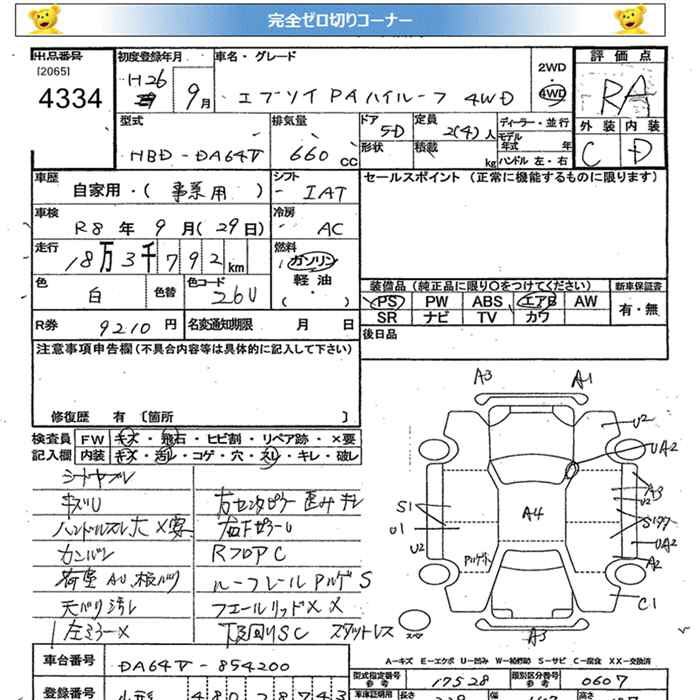 完全ゼロ切りコーナー
出品番号
[2065]
4334
初度登録年月
H26
9月
車名・グレード
エブリイ PAハイルーフ 4WD
2WD
・
4WD
評価点
RA
外装 内装
C D
型式
HBD-DA64V
排気量
660 cc
ドア 5D
形状
定員 2(4)人
積載 kg
ディーラー・並行
モデル年式 年
ハンドル 左・右
車歴
自家用・(事業用)
シフト
IAT
車検
R8年 9月(29日)
冷房
AC
走行
18万3千792km
燃料
ガソリン
軽油
( ・ )
色 白
色替
色コード 26U
R券 9210円
名変通知期限 月 日
セールスポイント(正常に機能するものに限ります)
装備品(純正品に限り○をつけてください)
新車保証書
PS PW ABS エアB AW
SR ナビ TV カワ
有・無
後日品
注意事項申告欄(不具合内容等は具体的に記入して下さい)
修復歴 有 〔箇所 〕
検査員記入欄
FW キズ・飛石・ヒビ割・リペア跡・×要
内装 キズ・汚レ・コゲ・穴・スレ・キレ・破レ
シートヤブレ
キズU
ハンドルスレ大 ×要
カンバン
荷室AU、板バリ
天バリ汚レ
左ミラー×
右センタピラー歪みキレ
RフロアC
ルーフレールPハゲS
フューエルリッド××
下廻りSC スタットレス
A3 A1
U2
UA2
A3
U2
S1
U1
U2
A4
UA2
A2
C1
A3
スペア
A-キズ E-エクボ U-凹み W-補修跡 S-サビ C-腐食 XX-交換済
車台番号
DA64V-854200
型式指定番号
参考
17528
類別区分番号
参考
0607
登録番号
車庫証明用
長さ